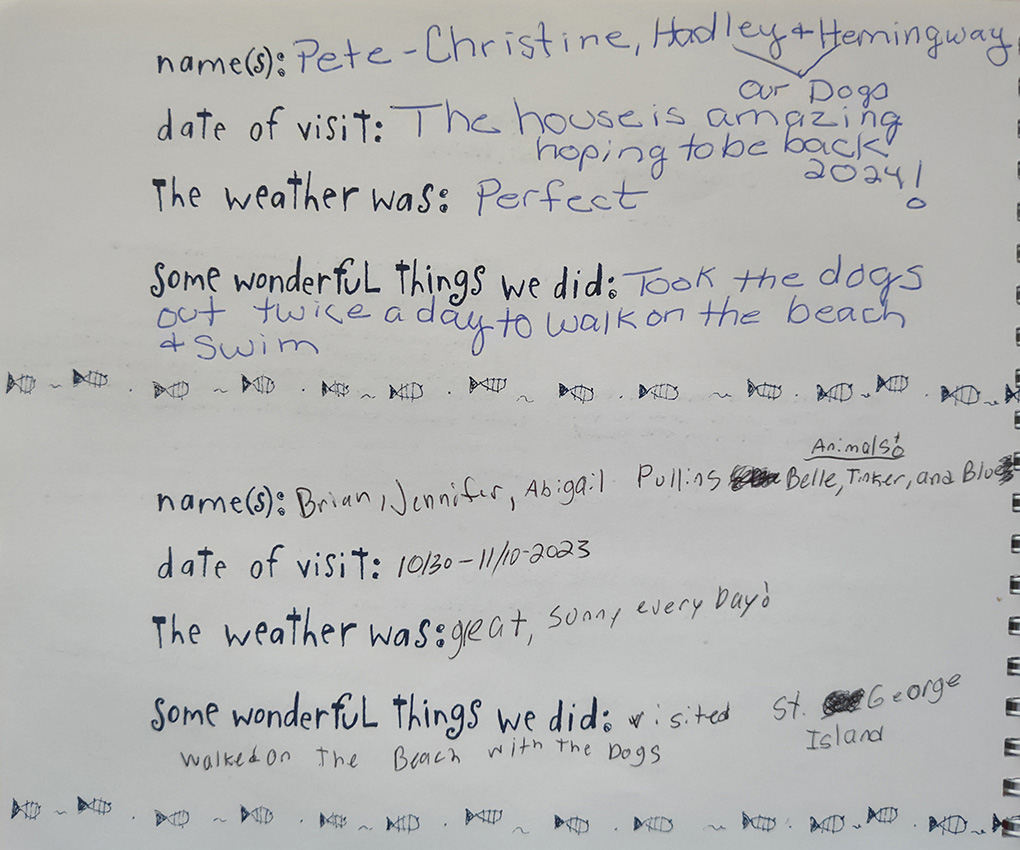 name(s): Pete - Christine, Hadley + Hemingway
our Dogs
date of visit: The house is amazing
hoping to be back
2024!
The weather was: Perfect
Some wonderful things we did: Took the dogs
out twice a day to walk on the beach
+ swim
Animals!
name(s): Brian, Jennifer, Abigail Pullins Belle, Tinker, and Blue
date of visit: 10/30 - 11/10-2023
The weather was: great, sunny every Day!
Some wonderful things we did: visited St. George
Island
walked on The Beach with the Dogs